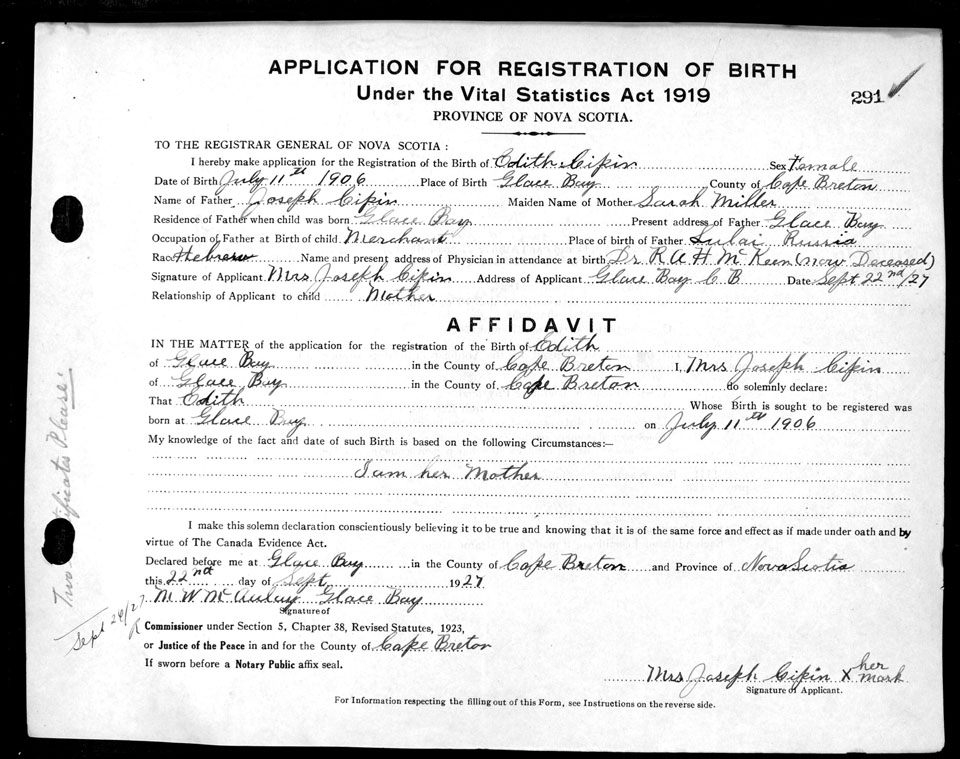 APPLICATION FOR REGISTRATION OF BIRTH
Under the Vital Statistics Act 1919
291
PROVINCE OF NOVA SCOTIA.
TO THE REGISTRAR GENERAL OF NOVA SCOTIA :
I hereby make application for the Registration of the Birth of Edith Cipin Sex Female
Date of Birth July 11th 1906 Place of Birth Glace Bay County of Cape Breton
Name of Father Joseph Cipin Maiden Name of Mother Sarah Miller
Residence of Father when child was born Glace Bay Present address of Father Glace Bay
Occupation of Father at Birth of child Merchant Place of birth of Father Russia
Race Hebrew Name and present address of Physician in attendance at birth Dr R A H McKeen (now Deceased)
Signature of Applicant Mrs Joseph Cipin Address of Applicant Glace Bay C B Date Sept 22nd/27
Relationship of Applicant to child Mother
AFFIDAVIT
IN THE MATTER of the application for the registration of the Birth of Edith
of Glace Bay in the County of Cape Breton I, Mrs Joseph Cipin
of Glace Bay in the County of Cape Breton do solemnly declare:
That Edith Whose Birth is sought to be registered was
born at Glace Bay on July 11th 1906
My knowledge of the fact and date of such Birth is based on the following Circumstances:—
I am her Mother
I make this solemn declaration conscientiously believing it to be true and knowing that it is of the same force and effect as if made under oath and by
virtue of The Canada Evidence Act.
Declared before me at Glace Bay in the County of Cape Breton and Province of Nova Scotia
this 22nd day of Sept 1927
M W McAulay Glace Bay
Signature of
Commissioner under Section 5, Chapter 38, Revised Statutes, 1923,
or Justice of the Peace in and for the County of Cape Breton
If sworn before a Notary Public affix seal.
Mrs Joseph Cipin X her mark
Signature of Applicant.
For Information respecting the filling out of this Form, see Instructions on the reverse side.
Two Certificates Please.
Sept 26/27
R